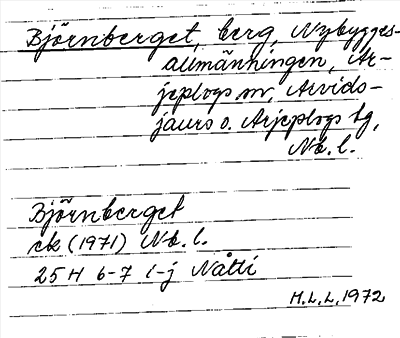 Björnberget, berg, Nybygges-
allmänningen, Ar-
jeplogs sn, Arvids-
jaurs o. Arjeplogs tg,
Nb. l.
Björnberget
ek (1971) Nb. l.
25 H 6-7 i-j Nåtti
H.L.L. 1972